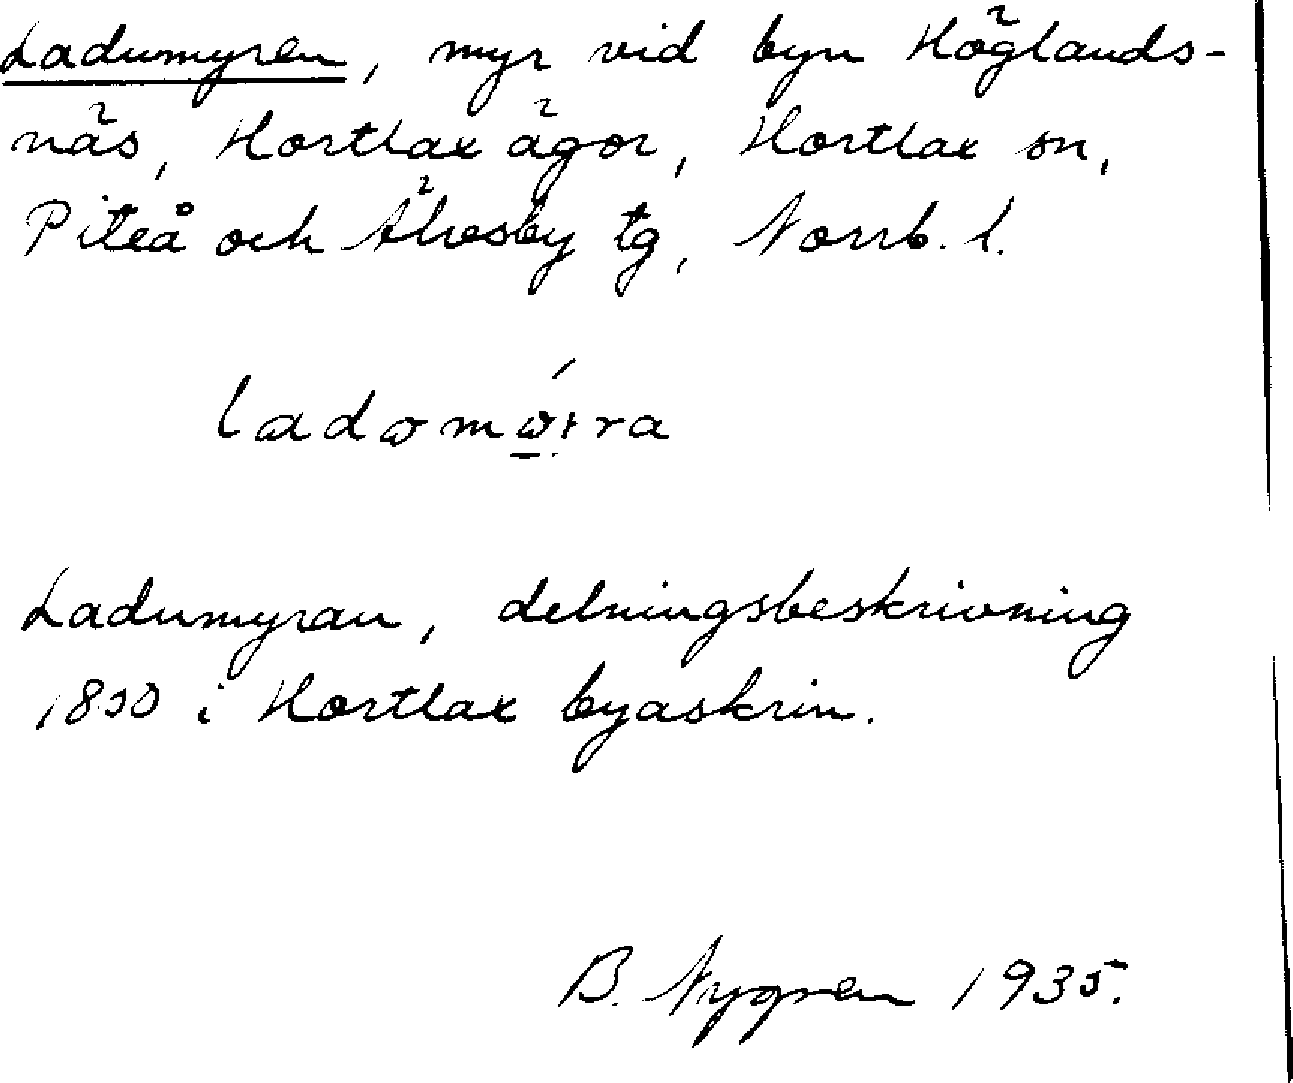 Ladumyren, myr vid byn Höglands-
näs, Hortlax ägor, Hortlax sn,
Piteå och Älvsby tg, Norrb. l.
Ladumyran, delningsbeskrivning
i Hortlax byaskrin.
B. Nygren 1935.